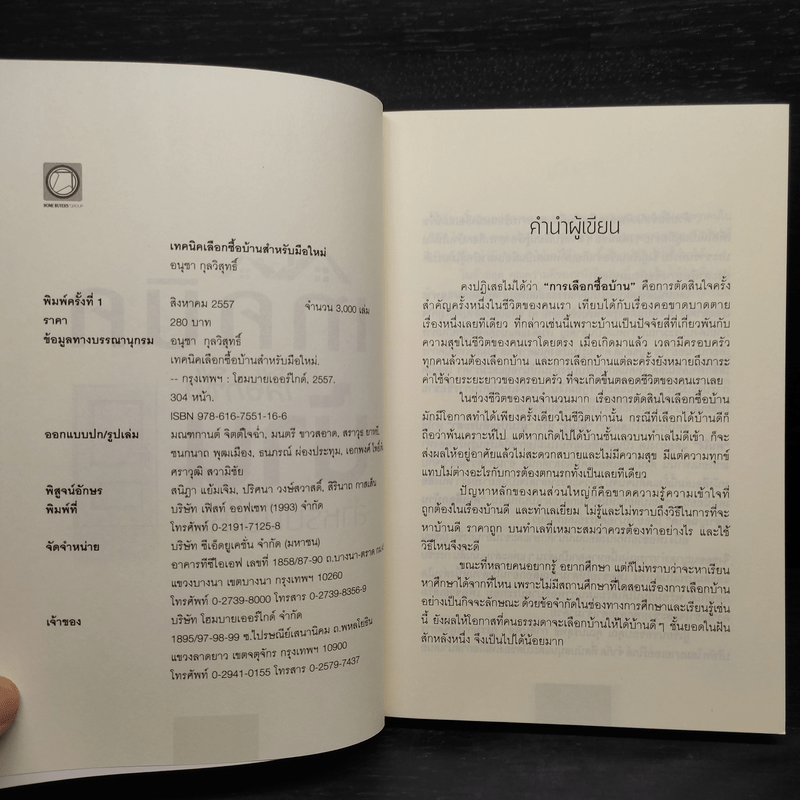 HOME BUYERS GROUP
เทคนิคเลือกซื้อบ้านสำหรับมือใหม่
อนุชา กุลวิสุทธิ์
พิมพ์ครั้งที่ 1 สิงหาคม 2557 จำนวน 3,000 เล่ม
ราคา 280 บาท
ข้อมูลทางบรรณานุกรม อนุชา กุลวิสุทธิ์
เทคนิคเลือกซื้อบ้านสำหรับมือใหม่.
-- กรุงเทพฯ : โฮมบายเออร์ไกด์, 2557.
304 หน้า.
ISBN 978-616-7551-16-6
ออกแบบปก/รูปเล่ม มณฑกานต์ จิตต์ใจฉ่ำ, มนตรี ขาวสอาด, สราวุธ
ชนกนาถ พุฒเมือง, ธนภรณ์ ผ่องประทุม, เอกพงศ์
ศราวุฒิ สวามิชัย
พิสูจน์อักษร สนิฎา แย้มเจิม, ปริศนา วงษ์สวาสดิ์, สิรินาถ กาสเส้น
พิมพ์ที่ บริษัท เฟิสท์ ออฟเซท (1993) จำกัด
โทรศัพท์ 0-2191-7125-8
จัดจำหน่าย บริษัท ซีเอ็ดยูเคชั่น จำกัด (มหาชน)
อาคารทีซีไอเอฟ เลขที่ 1858/87-90 ถ.บางนา-ตราด
แขวงบางนา เขตบางนา กรุงเทพฯ 10260
โทรศัพท์ 0-2739-8000 โทรสาร 0-2739-8356-9
เจ้าของ บริษัท โฮมบายเออร์ไกด์ จำกัด
1895/97-98-99 ซ.ไปรษณีย์เสนานิคม ถ.พหลโยธิน
แขวงลาดยาว เขตจตุจักร กรุงเทพฯ 10900
โทรศัพท์ 0-2941-0155 โทรสาร 0-2579-7437
คำนำผู้เขียน
คงปฏิเสธไม่ได้ว่า "การเลือกซื้อบ้าน" คือการตัดสินใจครั้ง
สำคัญครั้งหนึ่งในชีวิตของคนเรา เทียบได้กับเรื่องคอขาดบาดตาย
เรื่องหนึ่งเลยทีเดียว ที่กล่าวเช่นนี้เพราะบ้านเป็นปัจจัยสี่ที่เกี่ยวพันกับ
ความสุขในชีวิตของคนเราโดยตรง เมื่อเกิดมาแล้ว เวลามีครอบครัว
ทุกคนล้วนต้องเลือกบ้าน และการเลือกบ้านแต่ละครั้งยังหมายถึงภาระ
ค่าใช้จ่ายระยะยาวของครอบครัว ที่จะเกิดขึ้นตลอดชีวิตของคนเราเลย
ในช่วงชีวิตของคนจำนวนมาก เรื่องการตัดสินใจเลือกซื้อบ้าน
มักมีโอกาสทำได้เพียงครั้งเดียวในชีวิตเท่านั้น กรณีที่เลือกได้บ้านดีก็
ถือว่าพ้นเคราะห์ไป แต่หากเกิดไปได้บ้านชั้นเลวบนทำเลไม่ดีเข้า ก็จะ
ส่งผลให้อยู่อาศัยแล้วไม่สะดวกสบายและไม่มีความสุข มีแต่ความทุกข์
แทบไม่ต่างอะไรกับการต้องตกนรกทั้งเป็นเลยทีเดียว
ปัญหาหลักของคนส่วนใหญ่ก็คือขาดความรู้ความเข้าใจที่
ถูกต้องในเรื่องบ้านดี และทำเลเยี่ยม ไม่รู้และไม่ทราบถึงวิธีในการที่จะ
หาบ้านดี ราคาถูก บนทำเลที่เหมาะสมว่าควรต้องทำอย่างไร และใช้
วิธีไหนจึงจะดี
ขณะที่หลายคนอยากรู้ อยากศึกษา แต่ก็ไม่ทราบว่าจะหาเรียน
หาศึกษาได้จากที่ไหน เพราะไม่มีสถานศึกษาที่ใดสอนเรื่องการเลือกบ้าน
อย่างเป็นกิจจะลักษณะ ด้วยข้อจำกัดในช่องทางการศึกษาและเรียนรู้เช่น
นี้ ยังผลให้โอกาสที่คนธรรมดาจะเลือกบ้านให้ได้บ้านดีๆ ชั้นยอดในฝัน
สักหลังหนึ่ง จึงเป็นไปได้น้อยมาก